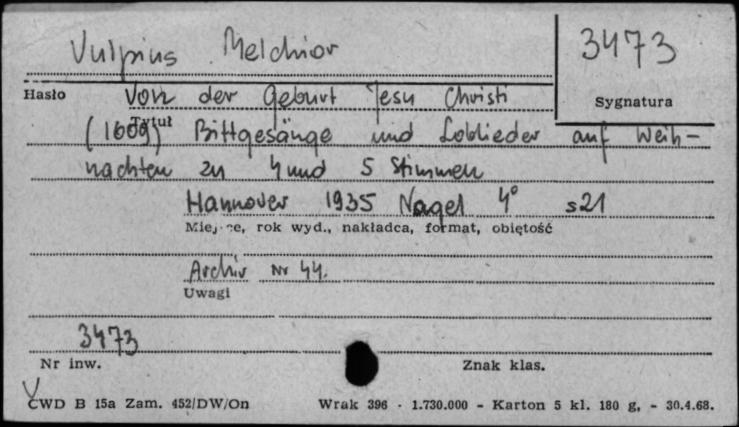 Vulpius Melchior
3473
Hasło
Von der Geburt Jesu Christi
Sygnatura
Tytuł
(1609) Bittgesänge und Loblieder auf Weih-
nachten zu 4 und 5 Stimmen
Hannover 1935 Nagel 4° s21
Miejsce, rok wyd., nakładca, format, obiętość
Archiv Nr 44.
Uwagi
3473
Nr inw.
Znak klas.
CWD B 15a Zam. 452/DW/On Wrak 396 - 1.730.000 - Karton 5 kl. 180 g, - 30.4.68.